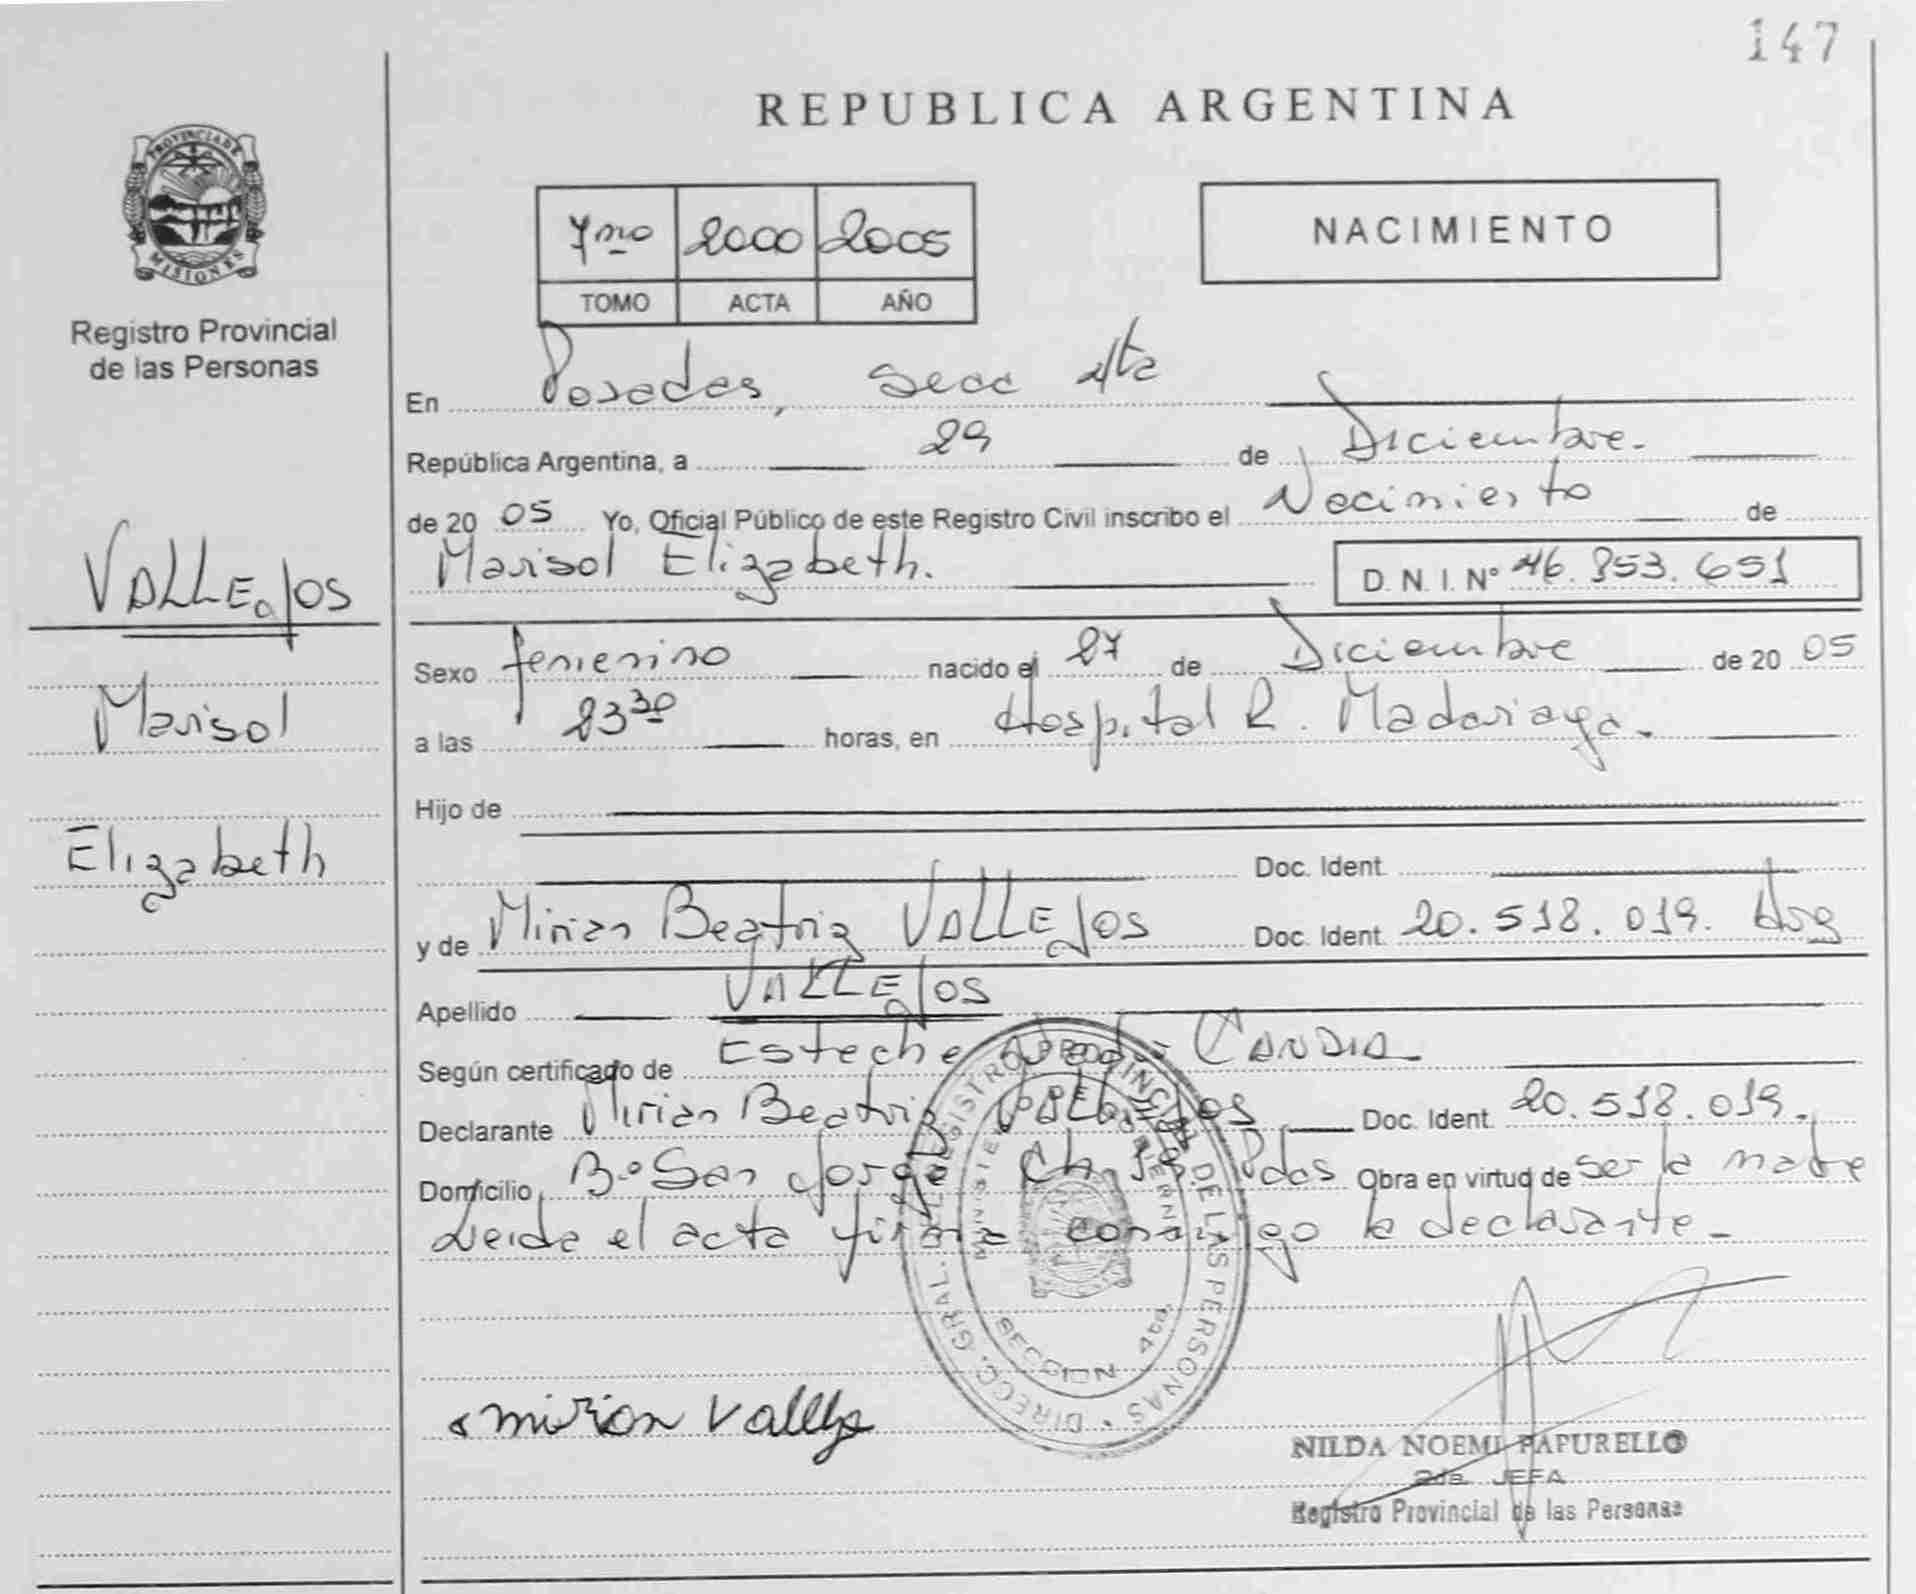 147
REPUBLICA ARGENTINA
PROVINCIA DE
MISIONES
Registro Provincial
de las Personas
7mo 2000 2005
TOMO ACTA AÑO
NACIMIENTO
VALLEJOS
Marisol
Elizabeth
En Posadas, Secc 4ta
República Argentina, a 29 de Diciembre.
de 20 05 Yo, Oficial Público de este Registro Civil inscribo el Nacimiento de
Marisol Elizabeth. D.N.I. Nº 46.353.651
Sexo femenino nacido el 27 de Diciembre de 20 05
a las 23 30 horas, en Hospital R. Madariaga.
Hijo de
Doc. Ident.
y de Mirian Beatriz VALLEJOS Doc. Ident. 20.518.019. Arg
Apellido VALLEJOS
Según certificado de Esteche CANDIA
Declarante Mirian Beatriz VALLEJOS Doc. Ident. 20.518.019.
Domicilio Bº San Jorge Ch. Pdas Obra en virtud de ser la madre
Leida el acta firma conmigo la declarante.
DIRECC. GRAL. REGISTRO PROVINCIAL DE LAS PERSONAS
SECCION 4ta
mirian Vallejo
NILDA NOEMI PAPURELLO
2da. JEFA
Registro Provincial de las Personas